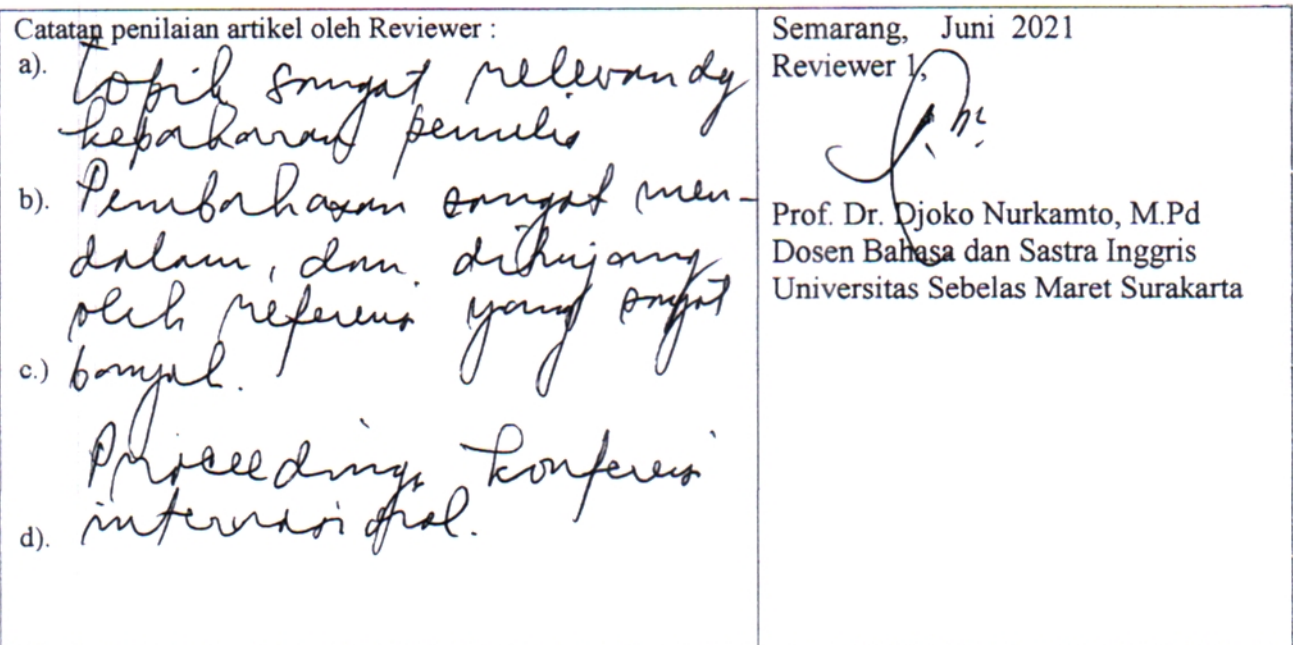 Catatan penilaian artikel oleh Reviewer :
a). Topik sangat relevan dg
kepakaran penulis
b). Pembahasan sangat men-
dalam, dan ditunjang
oleh referensi yang sangat
c.) banyak.
Proceeding konferensi
d). internasional.
Semarang, Juni 2021
Reviewer 1,
Prof. Dr. Djoko Nurkamto, M.Pd
Dosen Bahasa dan Sastra Inggris
Universitas Sebelas Maret Surakarta